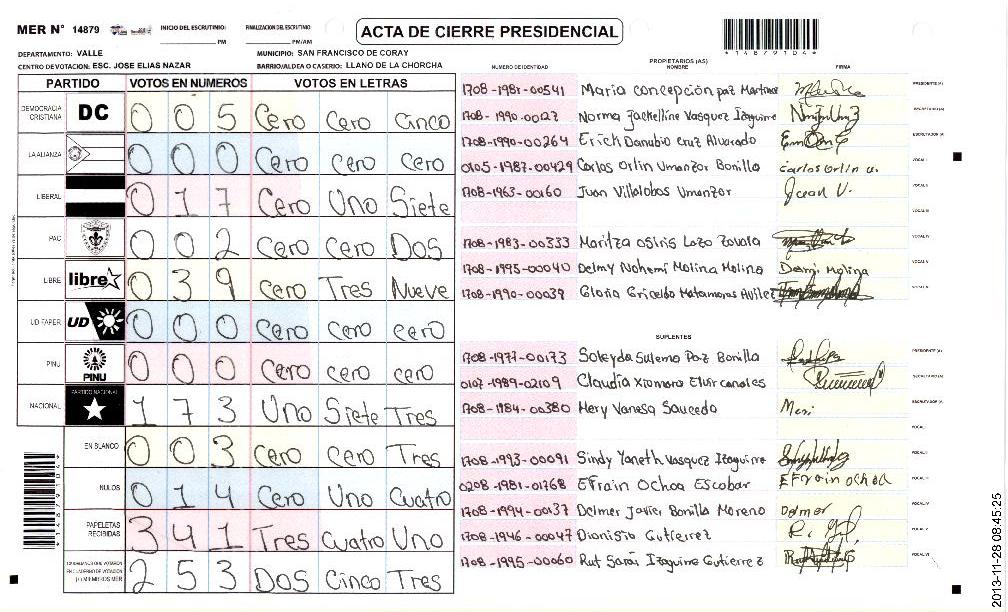 MER N° 14879
INICIO DEL ESCRUTINIO:
PM
FINALIZACION DEL ESCRUTINIO
PM/AM
ACTA DE CIERRE PRESIDENCIAL
*14879104*
DEPARTAMENTO: VALLE
MUNICIPIO: SAN FRANCISCO DE CORAY
CENTRO DE VOTACION: ESC. JOSE ELIAS NAZAR
BARRIO/ALDEA O CASERIO: LLANO DE LA CHORCHA
PARTIDO VOTOS EN NUMEROS VOTOS EN LETRAS
DEMOCRACIA CRISTIANA DC 0 0 5 Cero Cero Cinco
LA ALIANZA 0 0 0 Cero cero cero
LIBERAL 0 1 7 Cero Uno Siete
PAC 0 0 2 Cero Cero Dos
LIBRE libre 0 3 9 Cero Tres Nueve
UD FAPER UD 0 0 0 cero cero cero
PINU PINU 0 0 0 cero cero cero
NACIONAL PARTIDO NACIONAL 1 7 3 Uno Siete Tres
EN BLANCO 0 0 3 Cero Cero Tres
NULOS 0 1 4 Cero Uno Cuatro
PAPELETAS RECIBIDAS 3 4 1 Tres Cuatro Uno
2 5 3 Dos Cinco Tres
NUMERO DE IDENTIDAD
PROPIETARIOS (AS)
NOMBRE
FIRMA
1708-1981-00541 Maria Concepción paz Martinez PRESIDENTE (A)
1708-1990-00127 Norma Jackelline Vasquez Izaguirre SECRETARIO (A)
1708-1990-00264 Erick Danubio Cruz Alvarado ESCRUTADOR (A)
0105-1987-00429 Carlos Orlin Umanzor Bonilla carlos Orlin u. VOCAL I
1708-1963-00160 Juan Villalobos Umanzor Juan V. VOCAL II
VOCAL III
1708-1983-00333 Maritza Osiris Lazo Zavala VOCAL IV
1708-1995-00040 Delmy Nohemi Molina Molina Demi Molina VOCAL V
1708-1990-00039 Gloria Griselda Matamoros Avilez
SUPLENTES
1708-1977-00173 Soleyda Sulema Paz Bonilla PRESIDENTE (A)
0107-1989-02109 Claudia Xiomara Elvir canales SECRETARIO (A)
1708-1984-00380 Mery Vanesa Saucedo Meri ESCRUTADOR (A)
VOCAL I
1708-1993-00091 Sindy Yaneth Vasquez Izaguirre VOCAL II
0208-1981-01768 Efrain Ochoa Escobar Efrain ochoa
1708-1994-00137 Delmer Javier Bonilla Moreno Delmer VOCAL IV
1708-1946-00047 Dionisio Gutierrez VOCAL V
1708-1995-00060 Rut Sarai Izaguirre Gutierrez VOCAL VI
*14879104*
2013-11-28 08:45:25